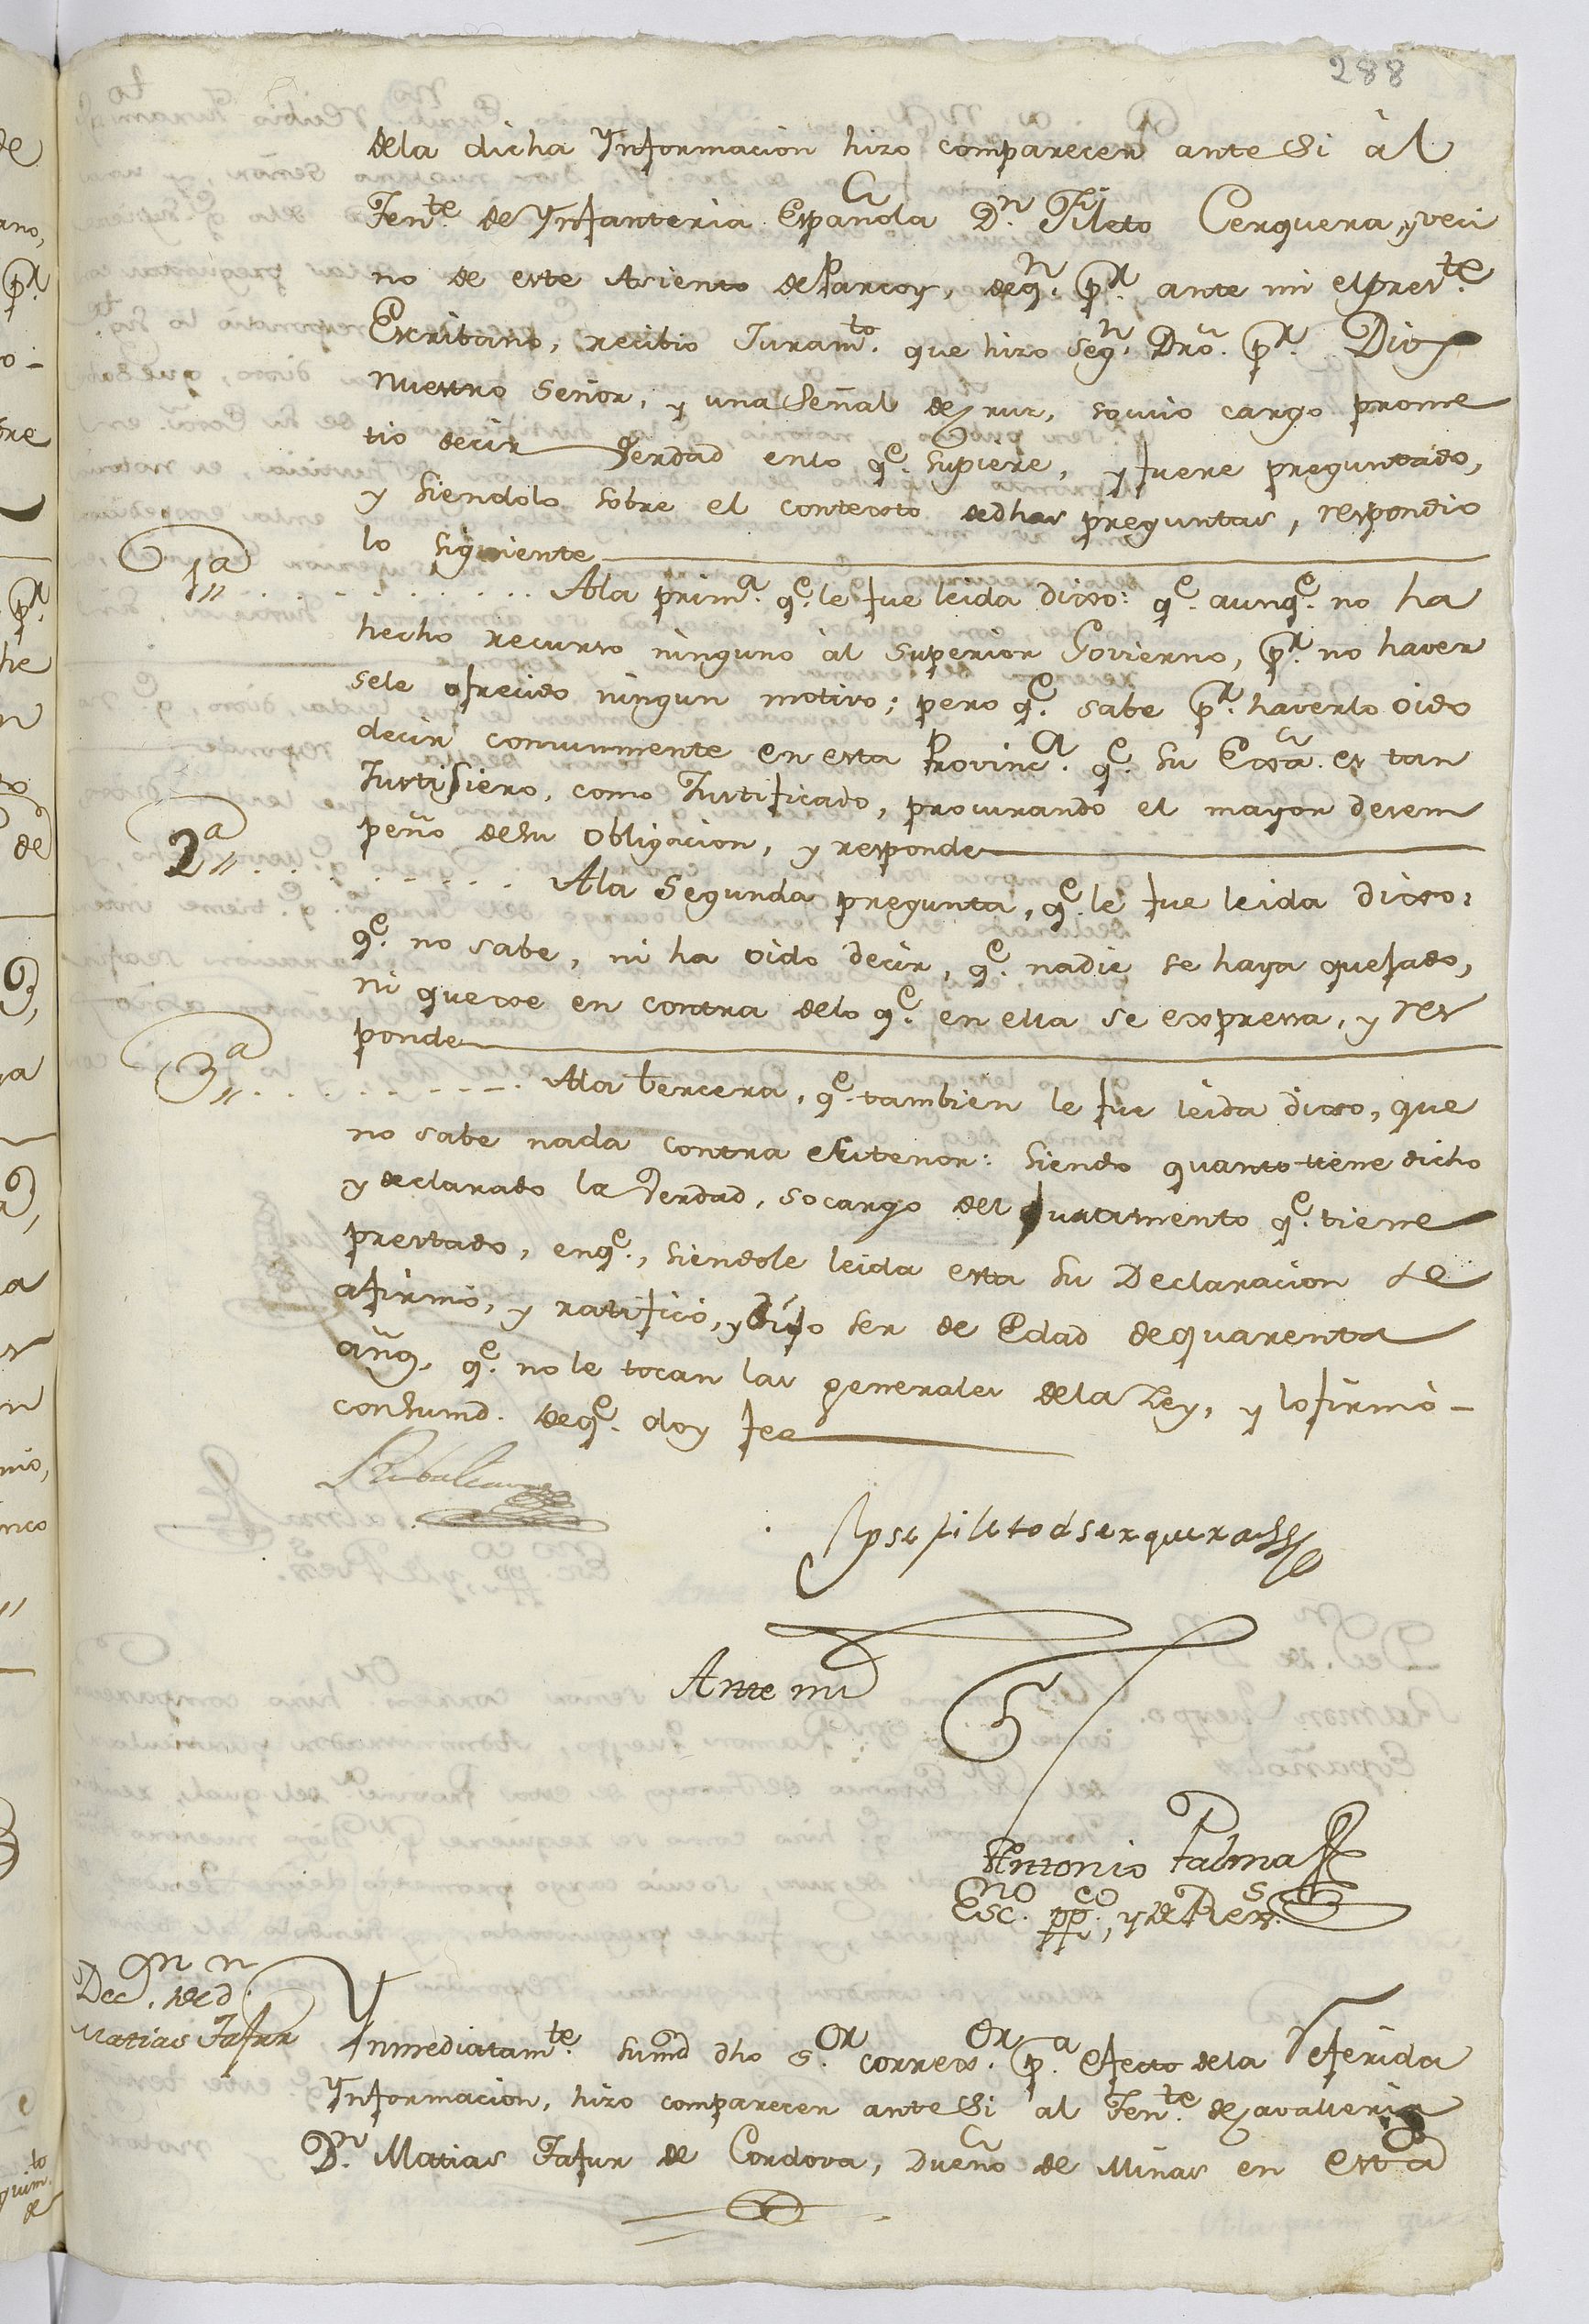 288
dela dicha Ynformacion hizo comparecer ante Si àl
Ten.te de Ynfanteria Española D.n Fileto Cerquera, y veci
no de este Asiento de Parcoy, deq.n p.r ante mi el pres.te
Escribano, recibio Juram.to que hizo seg.n Dro. p.r Dios
nuestro Señor, y una Señal de Cruz, socuio cargo prome
tio decir Verdad enlo q.e supiere, y fuere preguntado,
y Siendolo sobre el contexto de dhas preguntas, respondio
lo siguiente
1.a Ala prim.a q.e le fue leida dixo: q.e aunq.e no ha
hecho recurso ninguno al Superior Govierno, p.r no haver
sele ofrecido ningun motivo; pero q.e sabe p.r haverlo oido
decir comunmente en esta Provinc.a q.e Su Exa. es tan
JustiSiero, como Justificado, procurando el mayor desem
peño deSu Obligacion, y responde
2.a Ala Segunda pregunta, q.e le fue leida dixo:
q.e no sabe, ni ha oido decir, q.e nadie se haya quejado,
ni quexe en contra delo q.e en ella se expressa, y res
ponde
3.a Ala tercera, q.e tambien le fue leida dixo, que
no sabe nada contra eSu tenor: Siendo quanto tiene dicho
y declarado la Verdad, socargo del Juramento q.e tiene
prestado, enq.e, Siendole leida esta Su Declaracion se
afirmò, y ratificò, y Dijo ser de Edad de quarenta
años, q.e no le tocan las generales dela Ley, y lo firmò-
conSumd. deq.e doy fee
Jpse fileto d serquera
Ante mi
Antonio Palma
Esc.no pp.co, y de Res.s
Dec.on de D.n
Matias Tafur
Ynmediatam.te Sumd dho S.or correx.or p.a efecto dela Referida
Ynformacion, hizo comparecer ante Si al Ten.te de Cavalleria
D.n Matias Tafur de Cordova, Dueño de Minas en esta